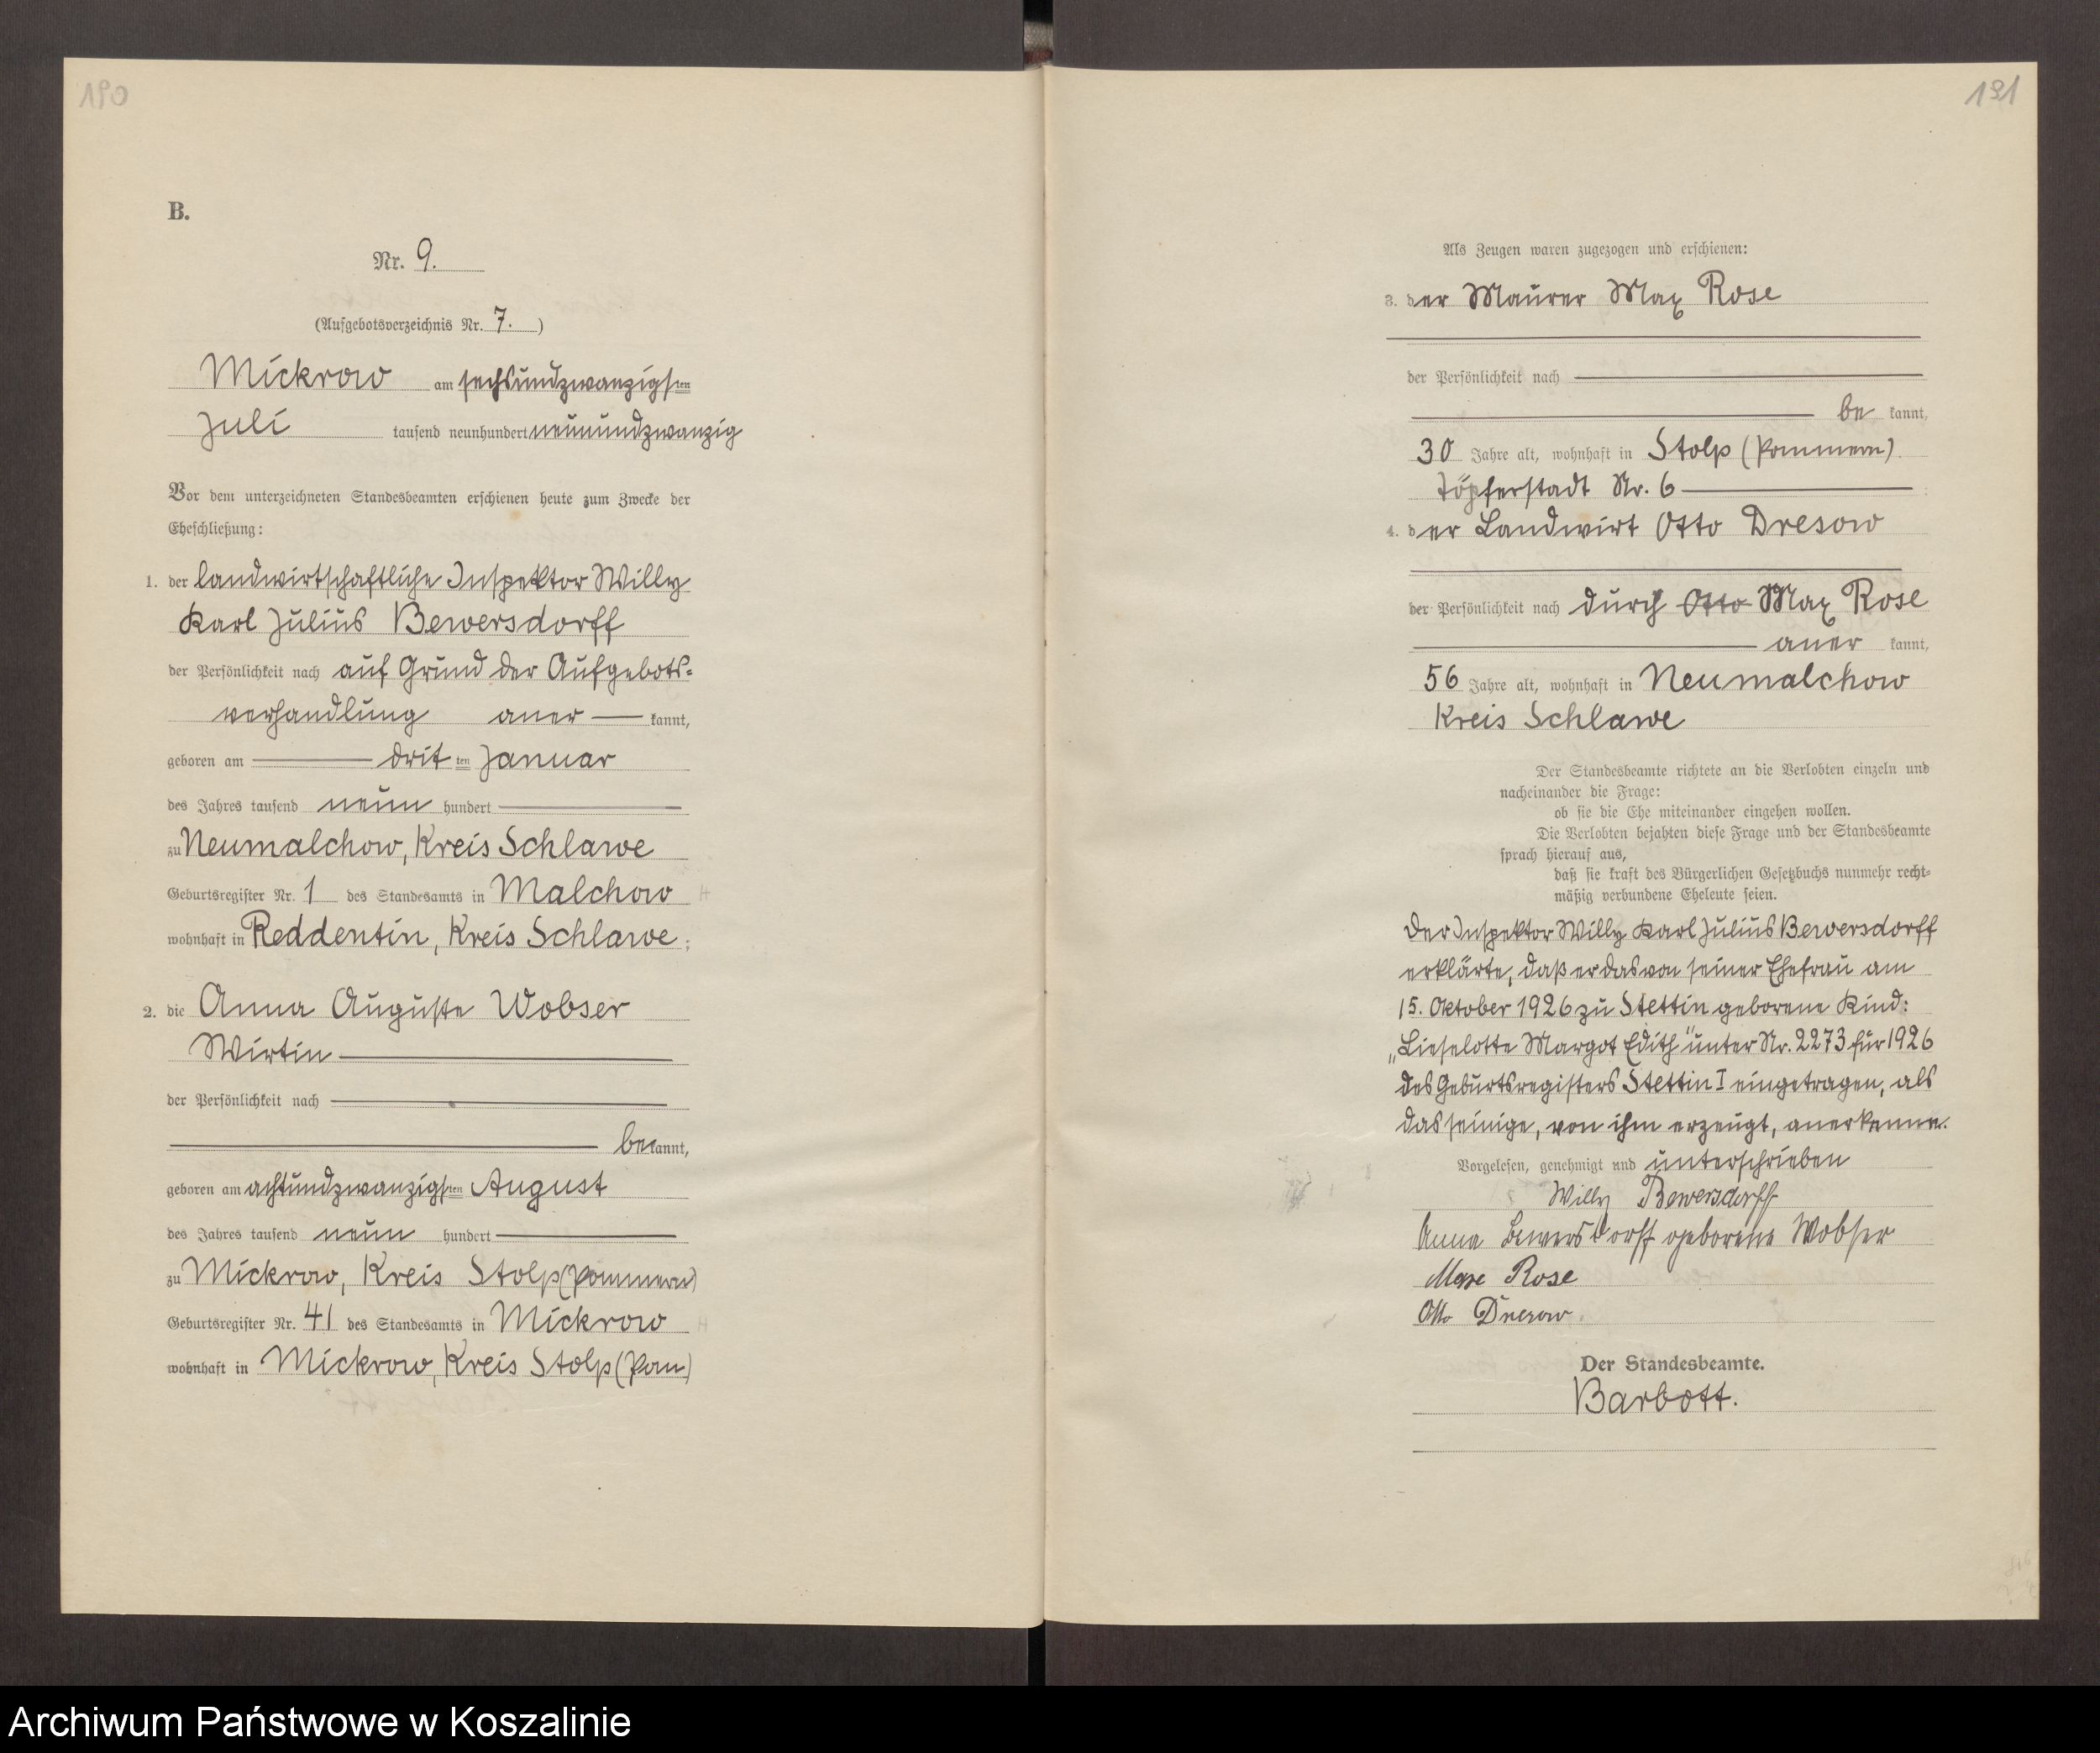 190
B.
Nr. 9.
(Aufgebotsverzeichnis Nr. 7. )
Mickrow am sechsundzwanzigsten
Juli tausend neunhundert neunundzwanzig
Vor dem unterzeichneten Standesbeamten erschienen heute zum Zwecke der
Eheschließung:
1. der landwirtschaftliche Inspektor Willy
Karl Julius Bewersdorff
der Persönlichkeit nach auf Grund der Aufgebots=
verhandlung aner — kannt,
geboren am — dritten Januar
des Jahres tausend neun hundert —
zu Neumalchow, Kreis Schlawe
Geburtsregister Nr. 1 des Standesamts in Malchow
wohnhaft in Reddentin, Kreis Schlawe;
2. die Anna Auguste Wobser
Wirtin —
der Persönlichkeit nach —
— bekannt,
geboren am achtundzwanzigsten August
des Jahres tausend neun hundert —
zu Mickrow, Kreis Stolp (Pommern)
Geburtsregister Nr. 41 des Standesamts in Mickrow
wohnhaft in Mickrow, Kreis Stolp (Pom)
191
Als Zeugen waren zugezogen und erschienen:
3. der Maurer Max Rose
der Persönlichkeit nach —
— be kannt,
30 Jahre alt, wohnhaft in Stolp (Pommern)
Töpferstadt Nr. 6 —
4. der Landwirt Otto Dresow
der Persönlichkeit nach durch Otto Max Rose
— aner kannt,
56 Jahre alt, wohnhaft in Neumalchow
Kreis Schlawe
Der Standesbeamte richtete an die Verlobten einzeln und
nacheinander die Frage:
ob sie die Ehe miteinander eingehen wollen.
Die Verlobten bejahten diese Frage und der Standesbeamte
sprach hierauf aus,
daß sie kraft des Bürgerlichen Gesetzbuchs nunmehr recht=
mäßig verbundene Eheleute seien.
Der Inspektor Willy Karl Julius Bewersdorff
erklärte, daß er das von seiner Ehefrau am
15. Oktober 1926 zu Stettin geborene Kind:
„Lieselotte Margot Edith" unter Nr. 2273 für 1926
des Geburtsregisters Stettin I eingetragen, als
das seinige, von ihm erzeugt, anerkenne.
Vorgelesen, genehmigt und unterschrieben
Willy Bewersdorff
Anna Bewersdorff geborene Wobser
Max Rose
Otto Dresow.
Der Standesbeamte.
Barbott.
Archiwum Państwowe w Koszalinie